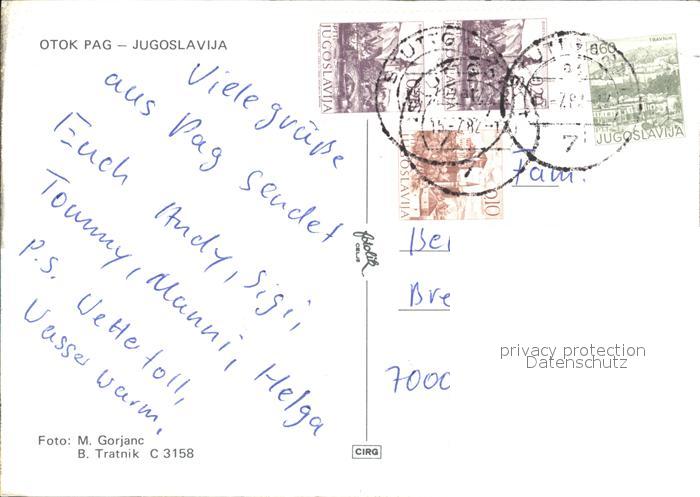 OTOK PAG – JUGOSLAVIJA
Viele grüße
aus Pag sendet
Euch Andy, Sigi,
Tommy, Manni, Helga
P.S. Wette toll,
Wasser warm.
Foto: M. Gorjanc
B. Tratnik C 3158
JUGOSLAVIJA
JUGOSLAVIJA
0.20
TRAVNIK
8.60
JUGOSLAVIJA
JUGOSLAVIJA
0.10
15.-7.82
7
fotolik
CELJE
CIRG
Fam.
Bei
Bre
7000
privacy protection
Datenschutz